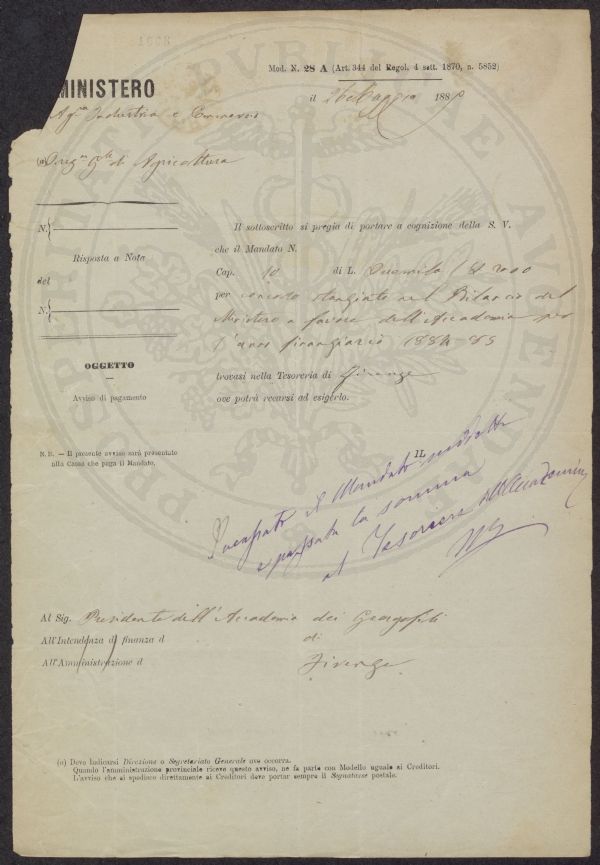 Mod. N. 28 A (Art. 344 del Regol. 4 sett. 1870, n. 5852)
MINISTERO
Agra Industria e Commercio
il 26 Maggio 188
(a) Direzne Gle di Agricoltura
N.
Risposta a Nota
del
N.
OGGETTO
Avviso di pagamento
N. B. — Il presente avviso sarà presentato
alla Cassa che paga il Mandato.
Il sottoscritto si pregia di portare a cognizione della S. V.
che il Mandato N.
Cap. 10 di L. Duemila / £ 2000
per concorso stanziato nel Bilancio del
Ministero a favore dell'Accademia per
l'anno finanziario 1884-85
trovasi nella Tesoreria di Firenze
ove potrà recarsi ad esigerlo.
IL
Incassato il Mandato suddetto
e passata la somma
al Tesoriere dell'Accademia
Al Sig. Presidente dell'Accademia dei Georgofili
All'Intendenza di finanza d di
All'Amministrazione d Firenze
(a) Deve indicarsi Direzione o Segretariato Generale ove occorra.
Quando l'amministrazione provinciale riceve questo avviso, ne fa parte con Modello uguale ai Creditori.
L'avviso che si spedisce direttamente ai Creditori deve portar sempre il Segnatasse postale.